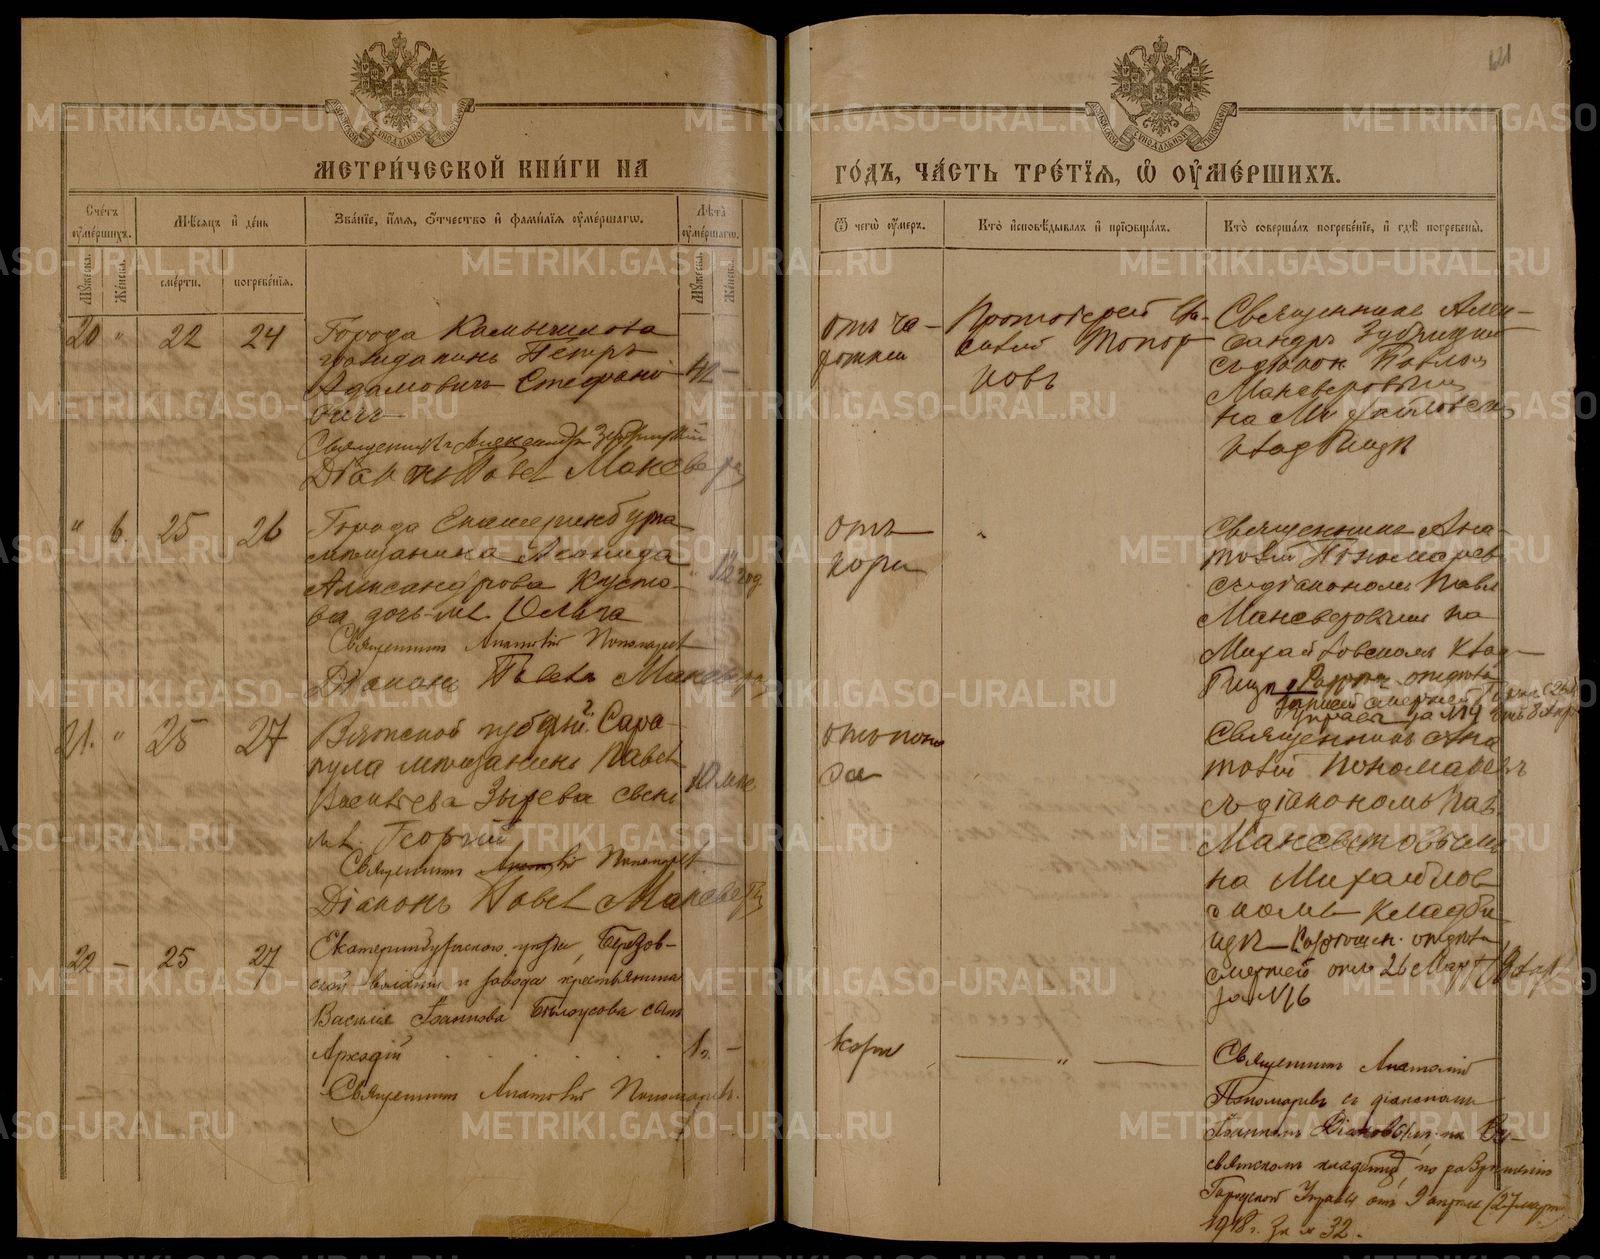 МЕТРИ́ЧЕСКОЙ КНИ́ГИ НА
ГО́ДЪ, ЧА́СТЬ ТРЕ́ТІѦ, Ѿ ОУМЕ́РШИХЪ.
Сче́тъ оумéршихъ.
Мꙋ́жеска.
Же́нска.
Мѣ́сяцъ и де́нь
сме́рти.
погребе́нія.
Зва́ніе, и́мя, о́тчество и фами́лія оуме́ршагѡ.
Лѣ́та оуме́ршагѡ.
Мꙋ́жеска.
Же́нска.
Ѿ чегѡ̀ оу́меръ.
Кто̀ исповѣ́дывалъ и пріѡбща́лъ.
Кто̀ соверша́лъ погребе́ніе, и гдѣ̀ погребены̀.
20 " 22 24
Города Камышлова
гражданинъ Петръ
Адамовичъ Стефано-
вичъ
42 -
Священникъ Александръ
Діаконъ Павел Маневеров
отъ ча-
хотки
Протоіерей
Топор
ковъ
Священникъ Алек-
сандръ
съ діакон. Павлом
Маневеровым
на Михайловск.
кладбищѣ
" 6. 25 26
Города Екатеринбурга
мѣщанина Леонида
Александрова Кусто-
ва дочь мл. Ольга
" 12 год
Священникъ Анатолій Пономарев
Діаконъ Павелъ Маневеров
отъ
кори
Священникъ Ана-
толій Пономарев
съ діакономъ Павл.
Маневеровым на
Михайловском клад-
бищѣ
21. " 25 27
Вятской губерніи г. Сара-
пула мѣщанинъ Павел
Васильева Зырева сынъ
мл. Георгій
10 мѣс
Священникъ Анатолій Пономарев
Діаконъ Павел Маневеров
отъ поно
са
Священникъ Ана
толій Пономаревъ
съ діакономъ Пав.
Маневеровымъ
на Михайлов
скомъ кладби
щѣ
смертей отъ 26 Март
за №16
22 - 25 27
Екатеринбургскаго уѣзда, Березов-
ской волости и завода крестьянина
Василія Іоаннова Бѣлоусова сынъ
Аркадій
1 г. -
Священникъ Анатолій Пономаревъ.
кори
"
Священникъ Анатолій
Пономаревъ съ діакономъ
Іоанномъ
на Все-
святскомъ кладбищѣ, по разрѣшенію
Городской Управы отъ 9 апрѣля (27 марта
1918 г. за № 32.